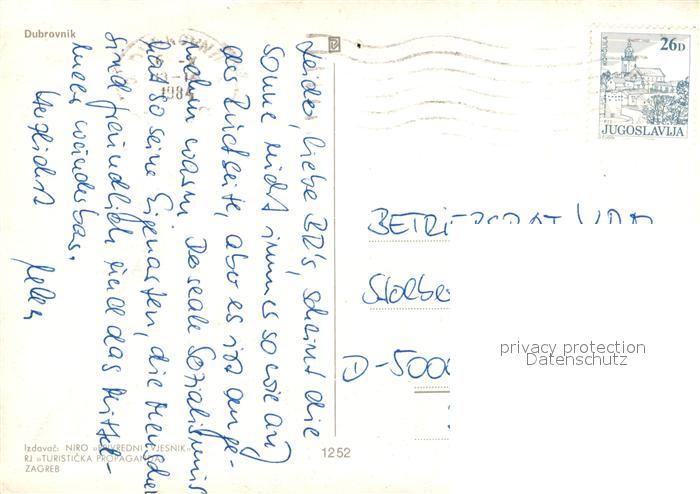 Dubrovnik
1984
KORČULA
26D
JUGOSLAVIJA
Leider, liebe BR's, scheint die
Sonne nicht immer so wie auf
der Rückseite, aber es ist ange-
nehm warm. Der reale Sozialismus
hat so seine Eigenarten, die Menschen
sind freundlich und das Mittel-
meer wunderbar.
Herzlichst
BETRIEBSRAT
D-5000
privacy protection
Datenschutz
Izdavač: NIRO »PRIVREDNI VJESNIK«
RJ »TURISTIČKA PROPAGANDA«
ZAGREB
1252